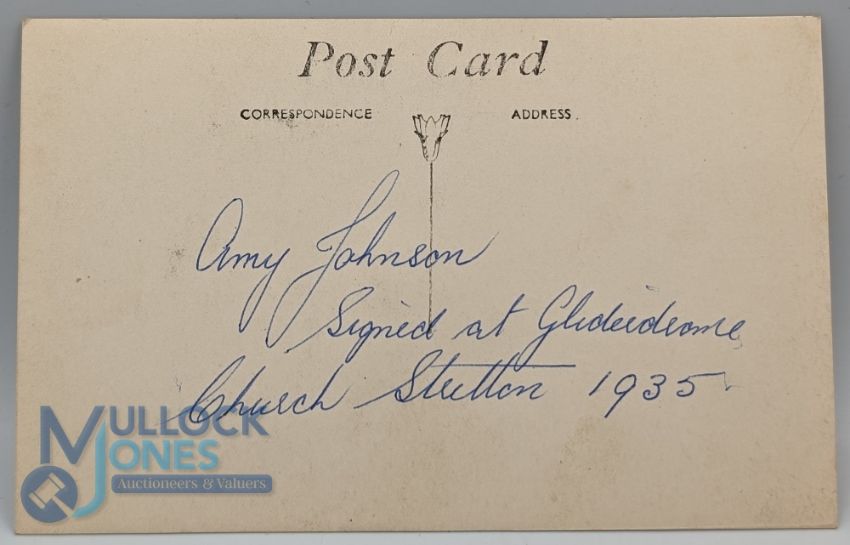 Post Card
CORRESPONDENCE ADDRESS.
Amy Johnson
Signed at Gliderdrome
Church Stretton 1935
MULLOCK
JONES
Auctioneers & Valuers